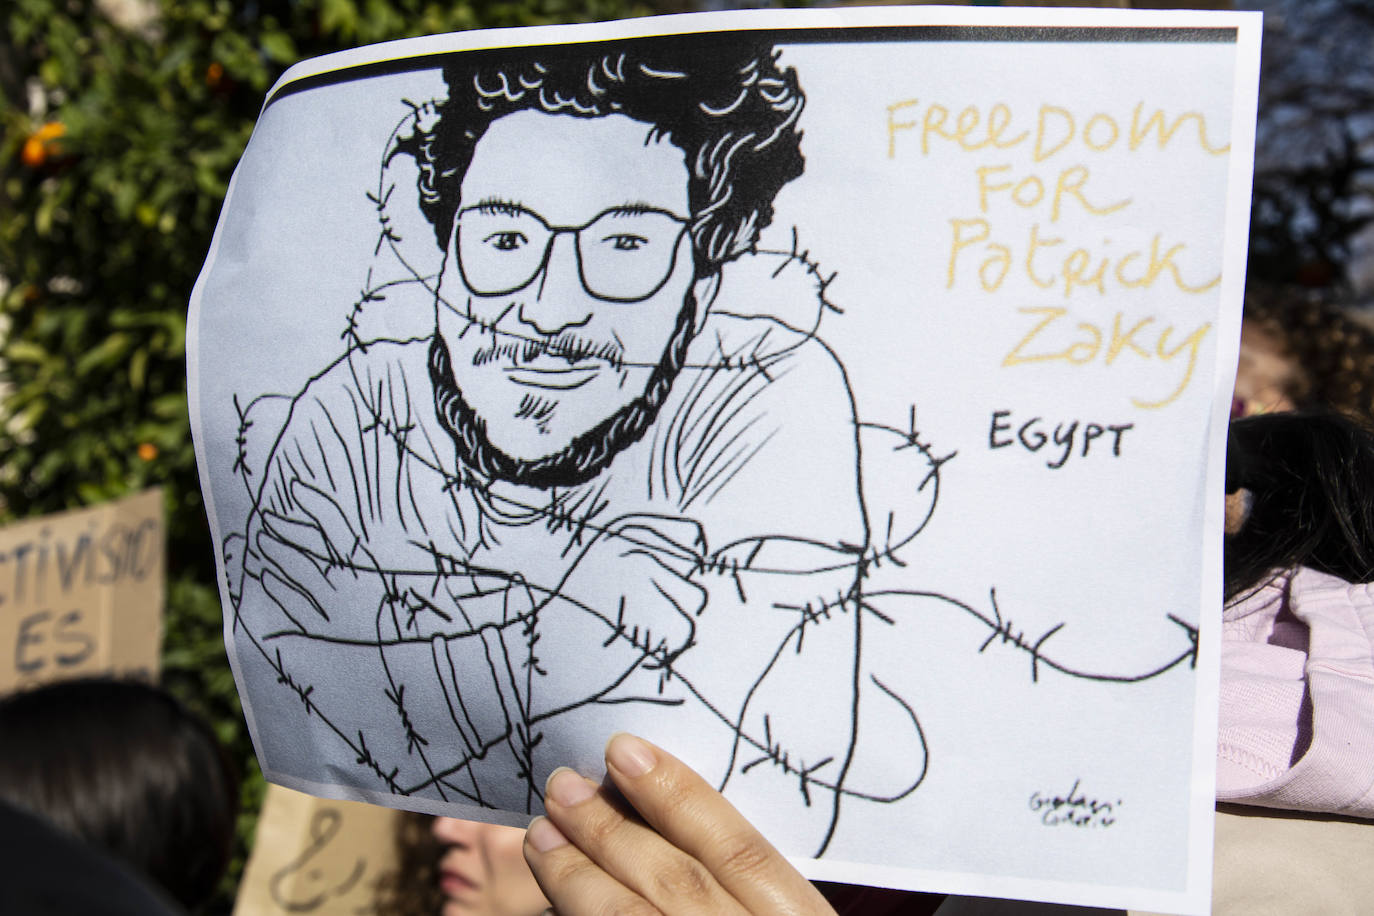 FREEDOM
FOR
Patrick
Zaky
EGYPT
CTIVISMO
ES
¿